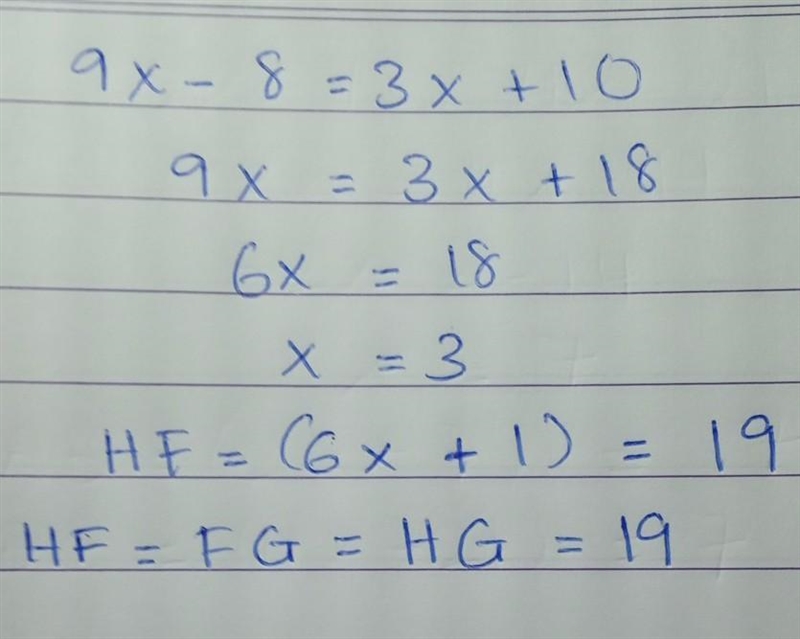 9x - 8 = 3x + 10
9x = 3x + 18
6x = 18
x = 3
HF = (6x + 1) = 19
HF = FG = HG = 19